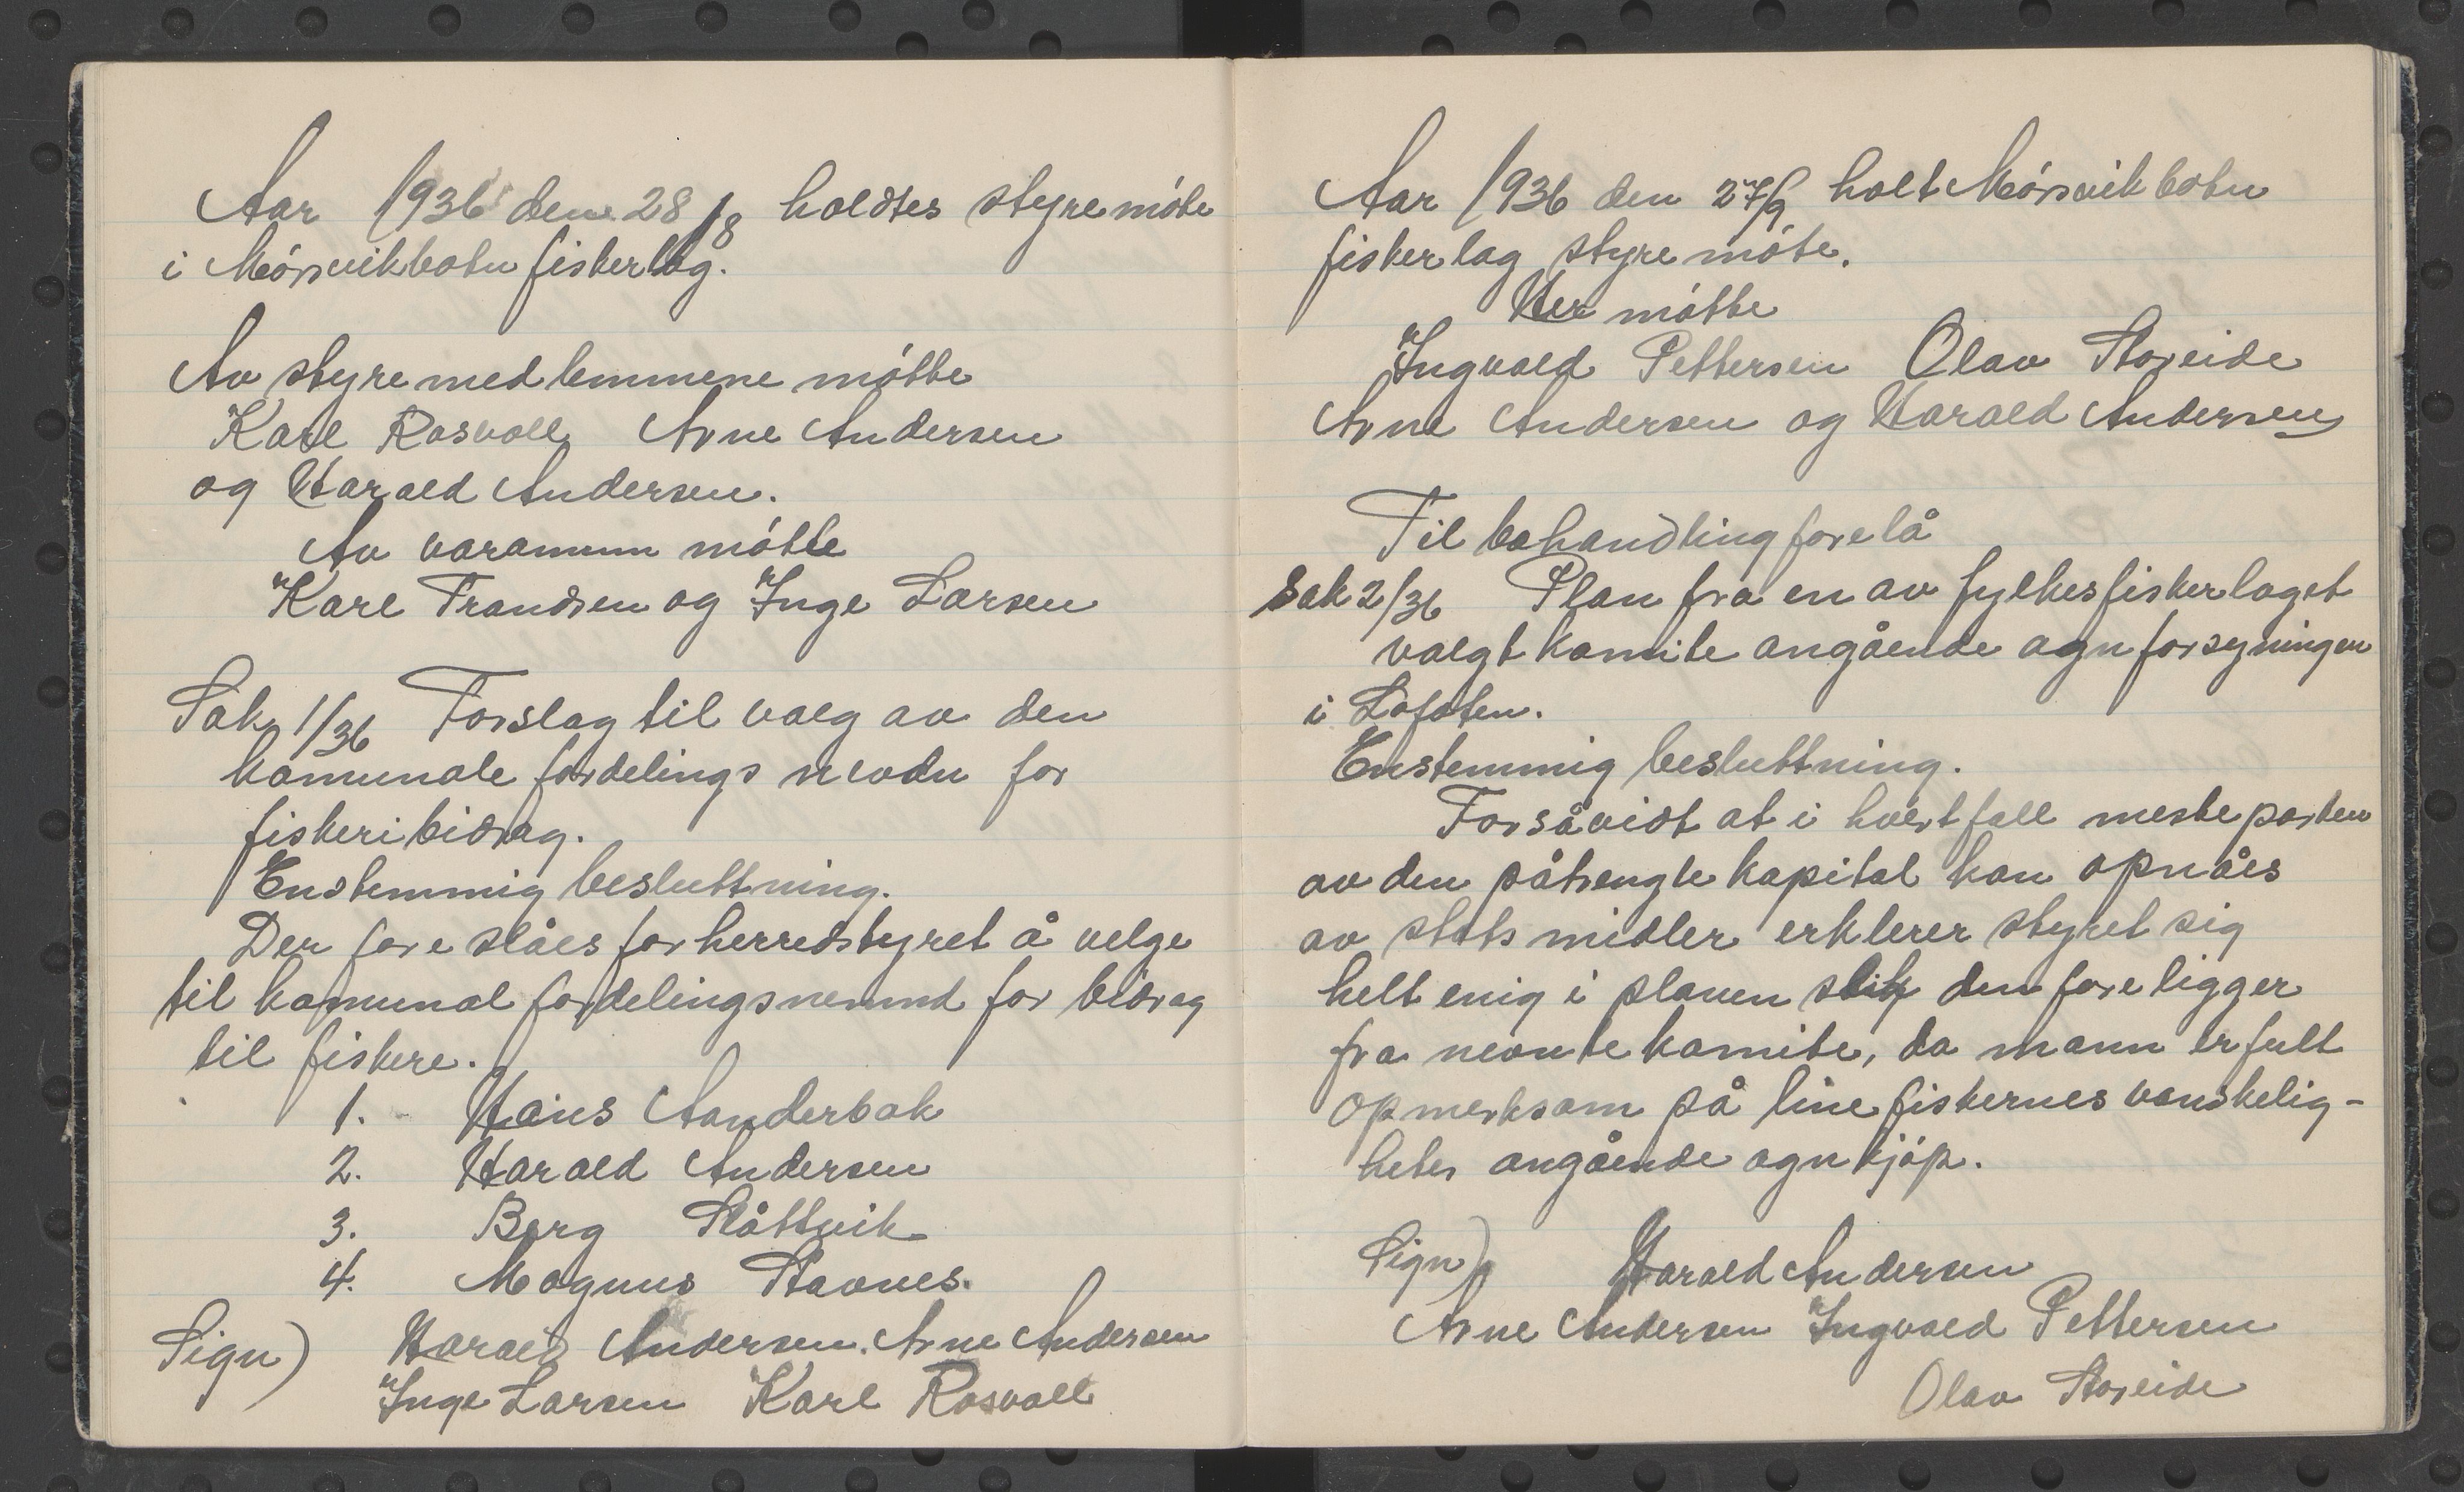 Aar 1936 den 28/8 holdtes styremóte
i Mórsvikbotn fiskerlag.
Av styremedlemmene mótte
Karl Rosvoll Arne Andersen
og Harald Andersen.
Av varamenn mótte
Karl Trandsen og Inge Larsen
Sak 1/36 Forslag til valg av den
komunale fordelings nevdn for
fiskeribidrag.
Enstemmig besluttning.
Der foreslåes for herredstyret å velge
til komunal fordelingsnemnd for bidrag
til fiskere.
1. Hans Aanderbak
2. Harald Andersen
3. Berg Slåttvik
4. Magnus Stavnes.
Sign) Harald Andersen. Arne Andersen
Inge Larsen Karl Rosvoll
Aar 1936 den 27/9 holt Mórsvikbotn
fiskerlag styremóte.
Her mótte
Ingvald Pettersen Olav Storeide
Arne Andersen og Harald Andersen
Til behandling forelå
Sak 2/36 Plan fra en av fylkesfiskerlaget
valgt komite angående agnforsyningen
i Lofoten.
Enstemmig besluttning.
Forsåvidt at i hvertfall mesteparten
av den påtrengte kapital kan opnåes
av statsmidler erklerer styret sig
helt enig i planen slik den foreligger
fra nevnte komite, da mann er fult
opmerksom på linefiskernes vanskelig-
heter angående agnkjóp.
Sign) Harald Andersen
Arne Andersen Ingvald Pettersen
Olav Storeide